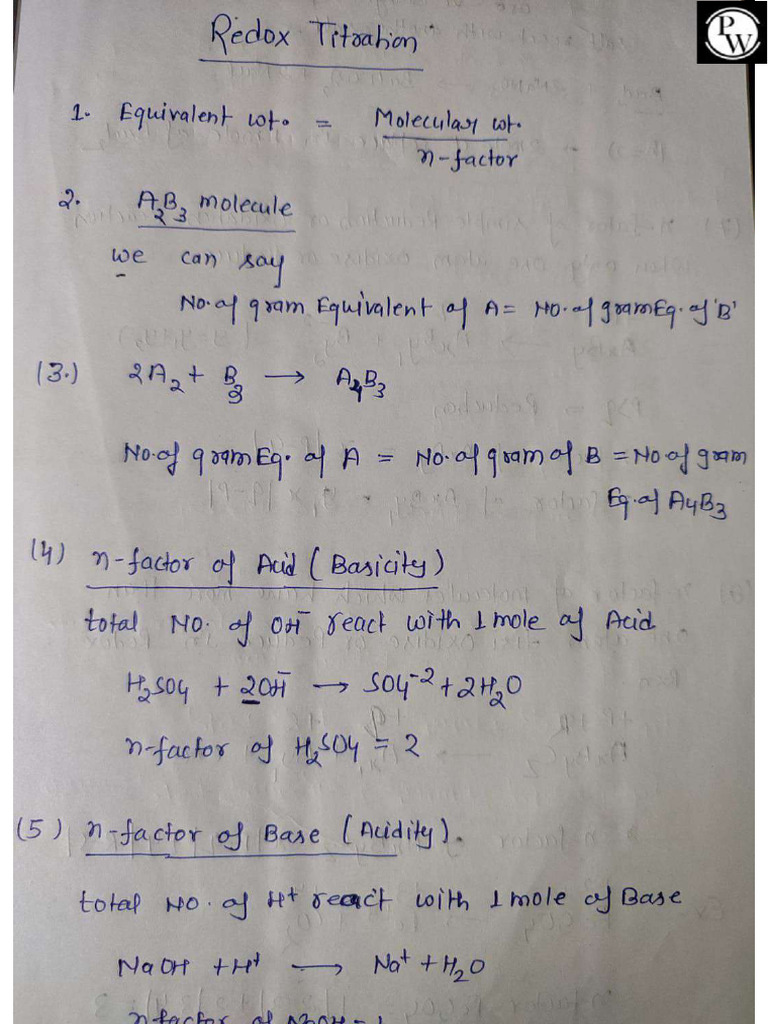 PW
Redox Titration
1. Equivalent wt. = Molecular wt. / n-factor
2. A2B3 molecule
we can say
No. of gram Equivalent of A = No. of gram Eq. of 'B'
(3.) 2A2 + B3 → A4B3
No. of gram Eq. of A = No. of gram of B = No of gram
Eq. of A4B3
(4) n-factor of Acid (Basicity)
total No. of OH⁻ react with 1 mole of Acid
H2SO4 + 2OH⁻ → SO4⁻² + 2H2O
n-factor of H2SO4 = 2
(5) n-factor of Base (Acidity).
total No. of H⁺ react with 1 mole of Base
NaOH + H⁺ → Na⁺ + H2O
n-factor of